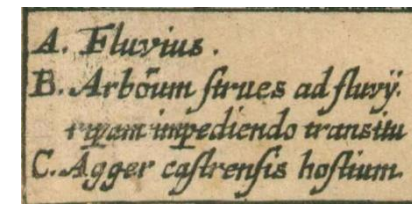 A. Fluvius.
B. Arbōum ſtrues ad fluvÿ.
ripam impediendo transitu
C. Agger caſtrenſis hoſtium.